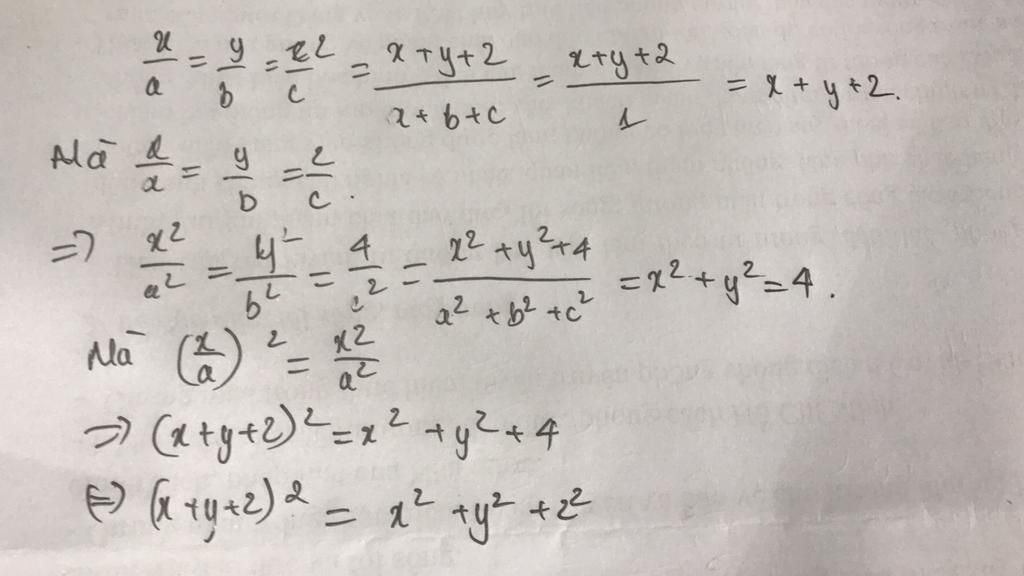 x/a = y/b = 2/c = (x+y+2)/(a+b+c) = (x+y+2)/1 = x+y+2.
Mà x/a = y/b = 2/c.
=> x²/a² = y²/b² = 4/c² = (x²+y²+4)/(a²+b²+c²) = x²+y²=4.
Mà (x/a)² = x²/a²
=> (x+y+2)² = x²+y²+4
<=> (x+y+2)² = x² +y² +2²